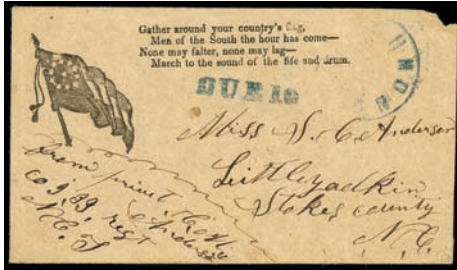 Gather around your country's flag,
Men of the South the hour has come—
None may falter, none may lag—
March to the sound of the fife and drum.
DUE 10
Miss S. C. Anderson
Little yadkin
Stokes county
N. C.
From privt
Anderson
Co 33 regt
N. C. S